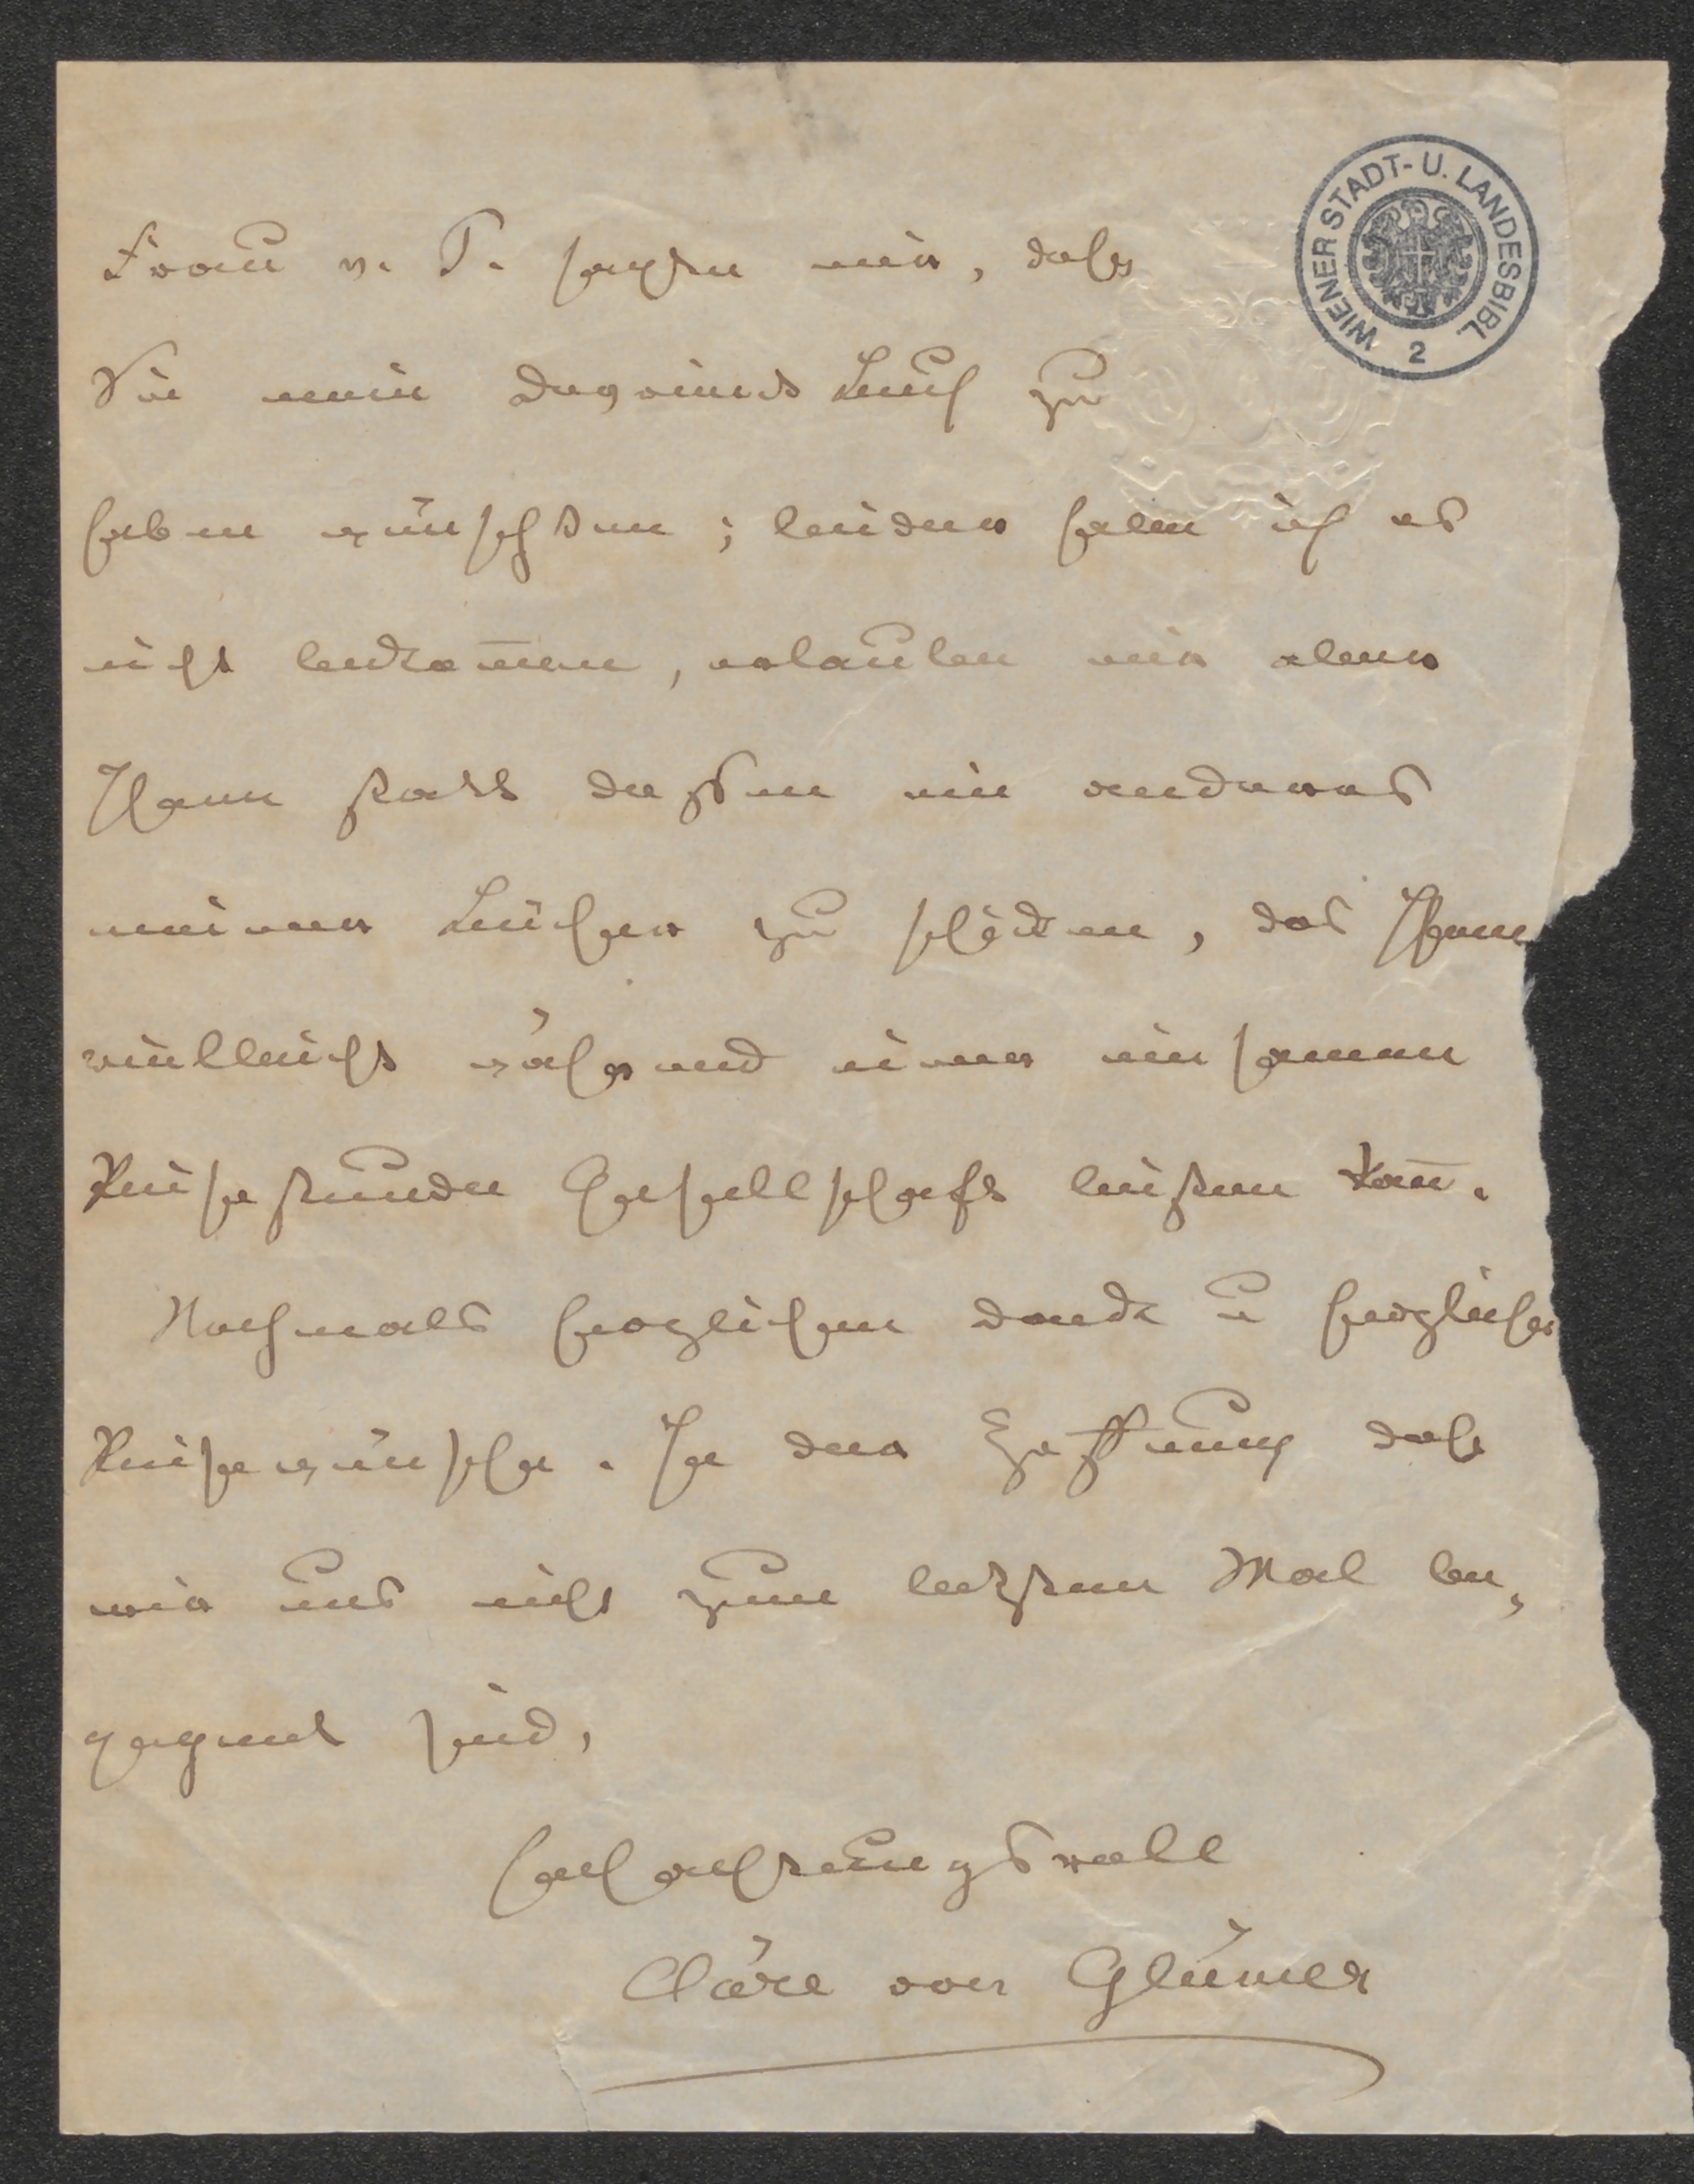 WIENER STADT- U. LANDESBIBL.
2
Frau v. T. sagten mir, daß
Sie mein Buch zu
haben wünschten; leider habe ich es
nicht bekom̅en, erlauben mir aber
Ihnen statt dessen ein anderes
meiner Bücher zu schicken, das Ihnen
vielleicht während einer einsamen
Reisestunde Gesellschaft leisten kan̅.
Nochmals herzlichen Dank u herzliche
Reisewünsche. In der Hoffnung daß
wir uns nicht zum letzten Mal be-
gegnet sind,
hochachtungsvoll
Claire von Glümer